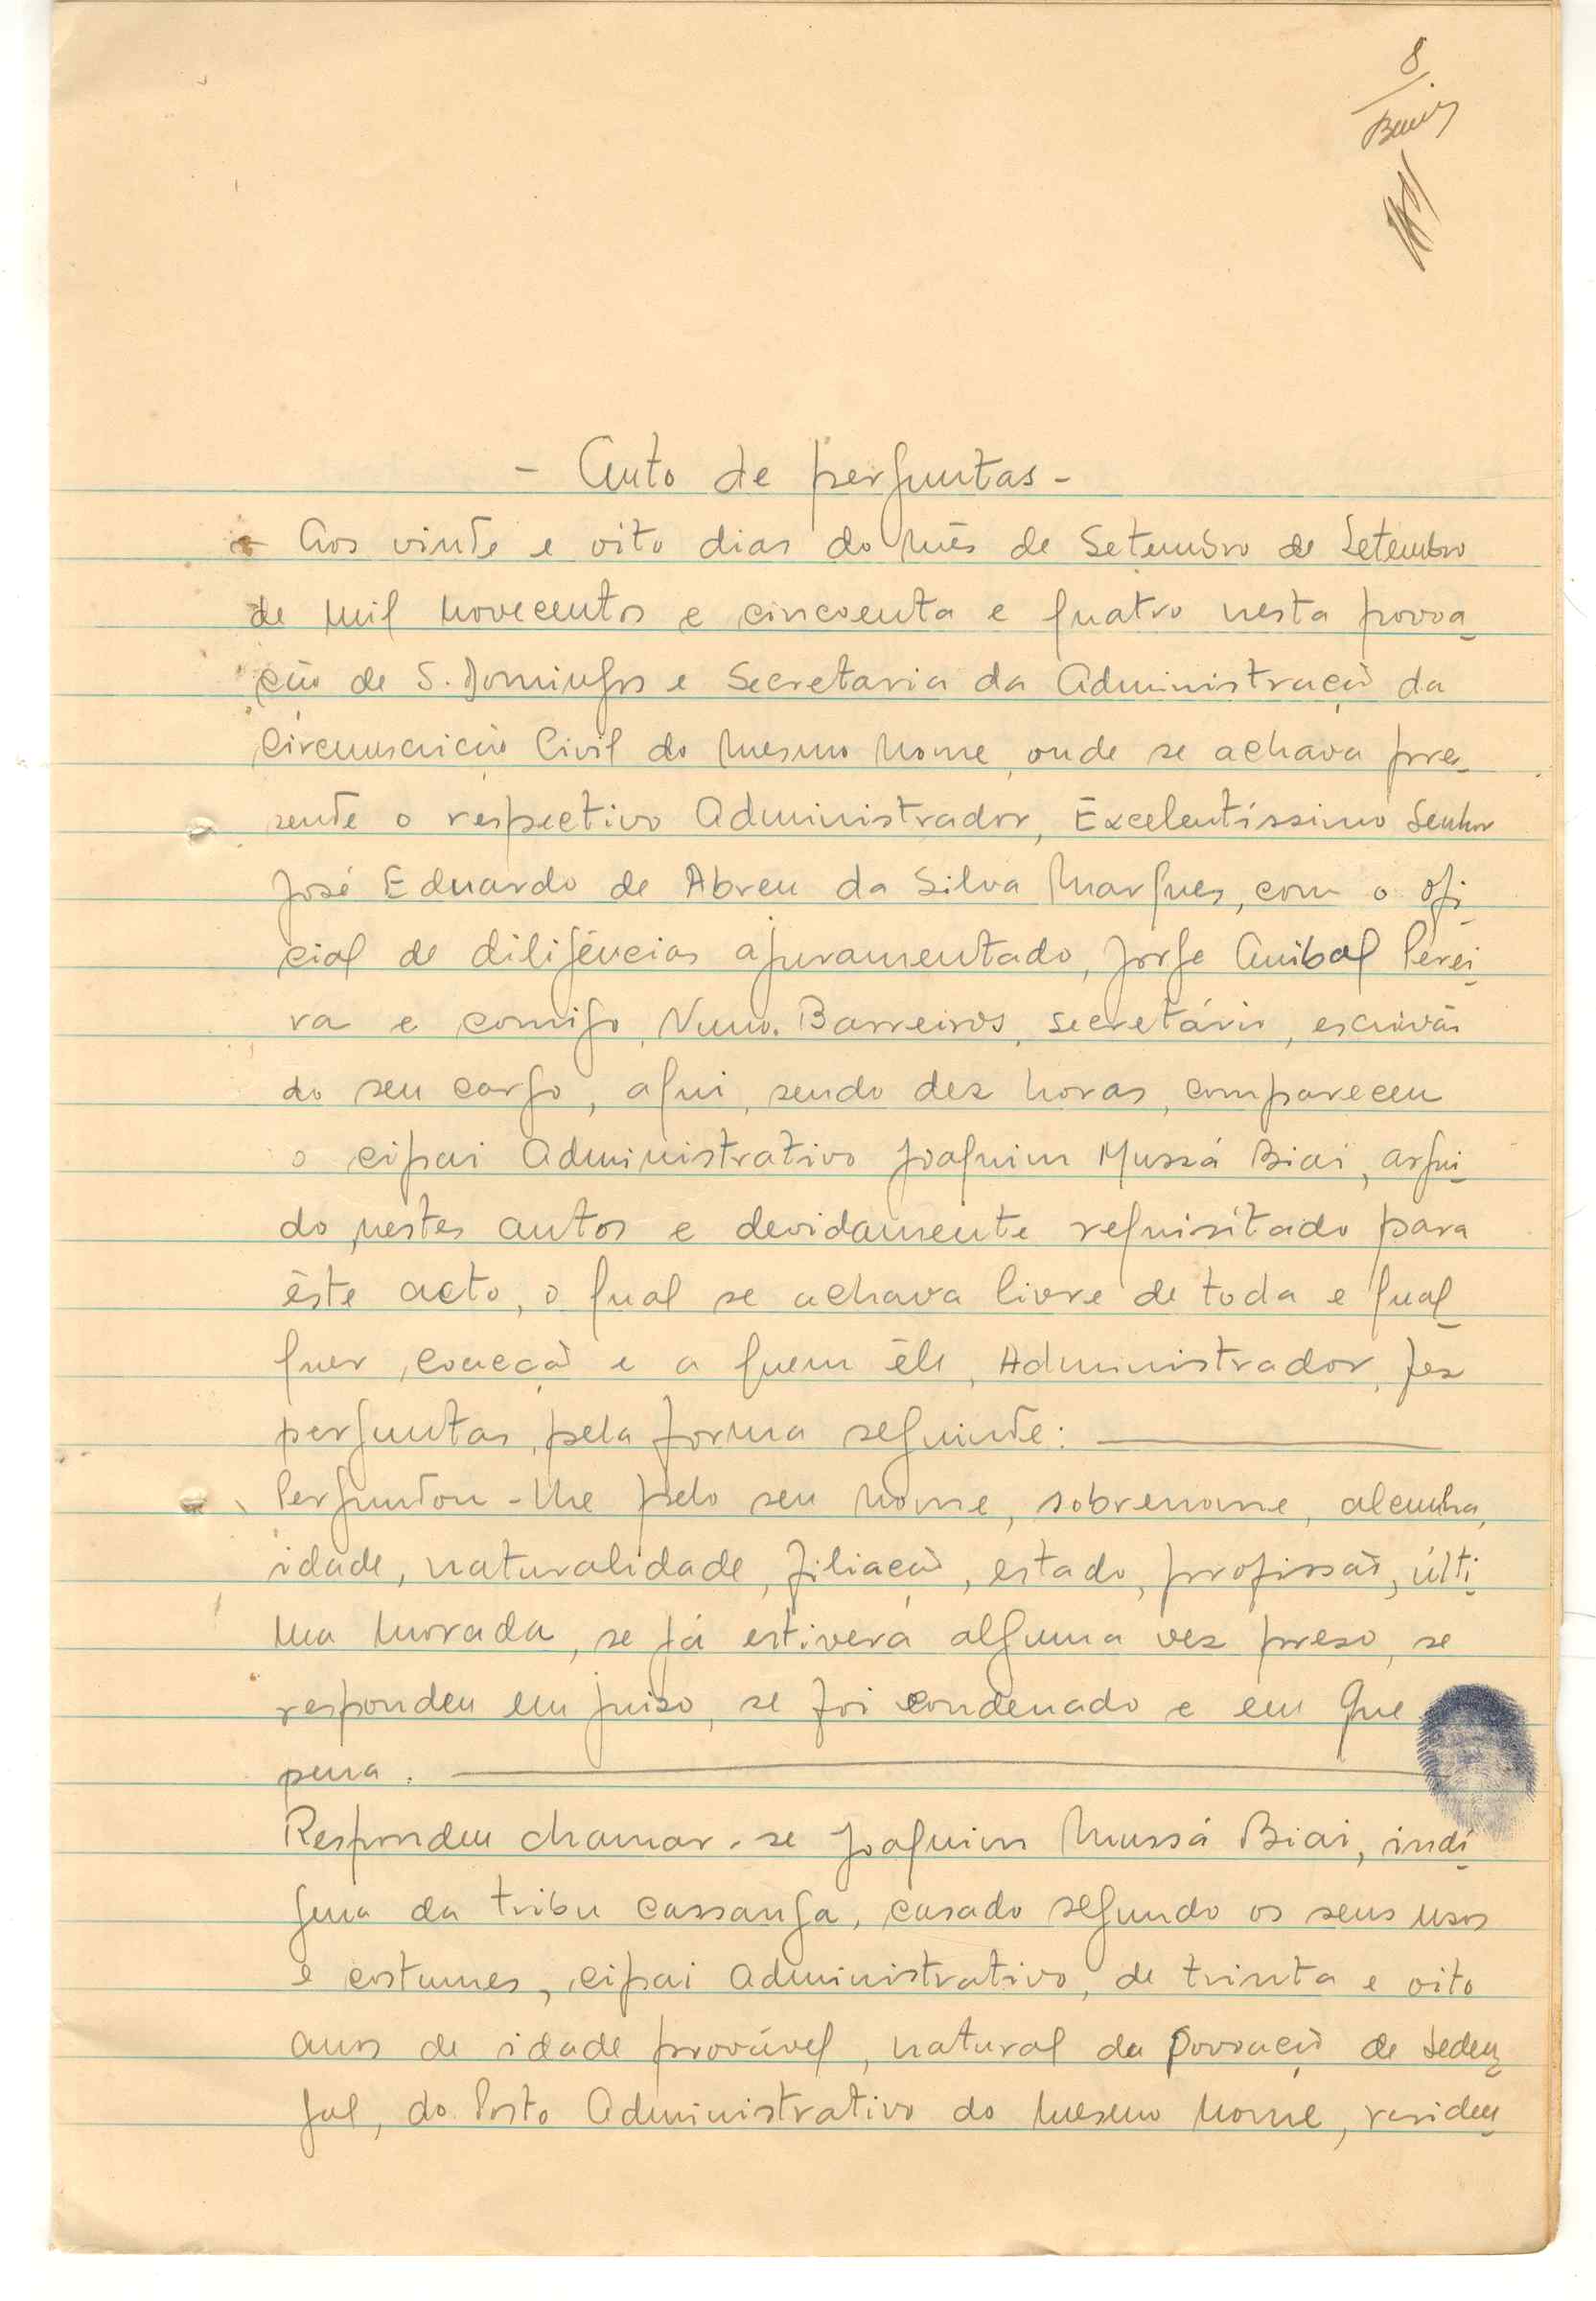 8
- Auto de perguntas -
- Aos vinte e oito dias do mês de Setembro de Setembro
de mil novecentos e cincoenta e quatro nesta povoa-
ção de S. Domingos e Secretaria da Administração da
Circunscrição Civil do mesmo nome, onde se achava pre-
sente o respectivo Administrador, Excelentíssimo Senhor
José Eduardo de Abreu da Silva Marques, com o ofi-
cial de diligências ajuramentado, Jorge Anibal Perei-
ra e comigo, Nuno Barreiros, secretário, escrivão
do seu cargo, aqui, sendo dez horas, compareceu
o cipai Administrativo Joaquim Mussá Biai, argui-
do nestes autos e devidamente requisitado para
êste acto, o qual se achava livre de toda e qual-
quer coacção e a quem êle, Administrador, fez
perguntas pela forma seguinte:
Perguntou-lhe pelo seu nome, sobrenome, alcunha,
idade, naturalidade, filiação, estado, profissão, últi-
ma morada, se já estivera alguma vez preso, se
respondeu em juizo, se foi condenado e em que
pena.
Respondeu chamar-se Joaquim Mussá Biai, indí-
gena da tribu cassanga, casado segundo os seus usos
e costumes, cipai Administrativo, de trinta e oito
anos de idade provável, natural da povoação de Seden-
gal, do Posto Administrativo do mesmo nome, residen-